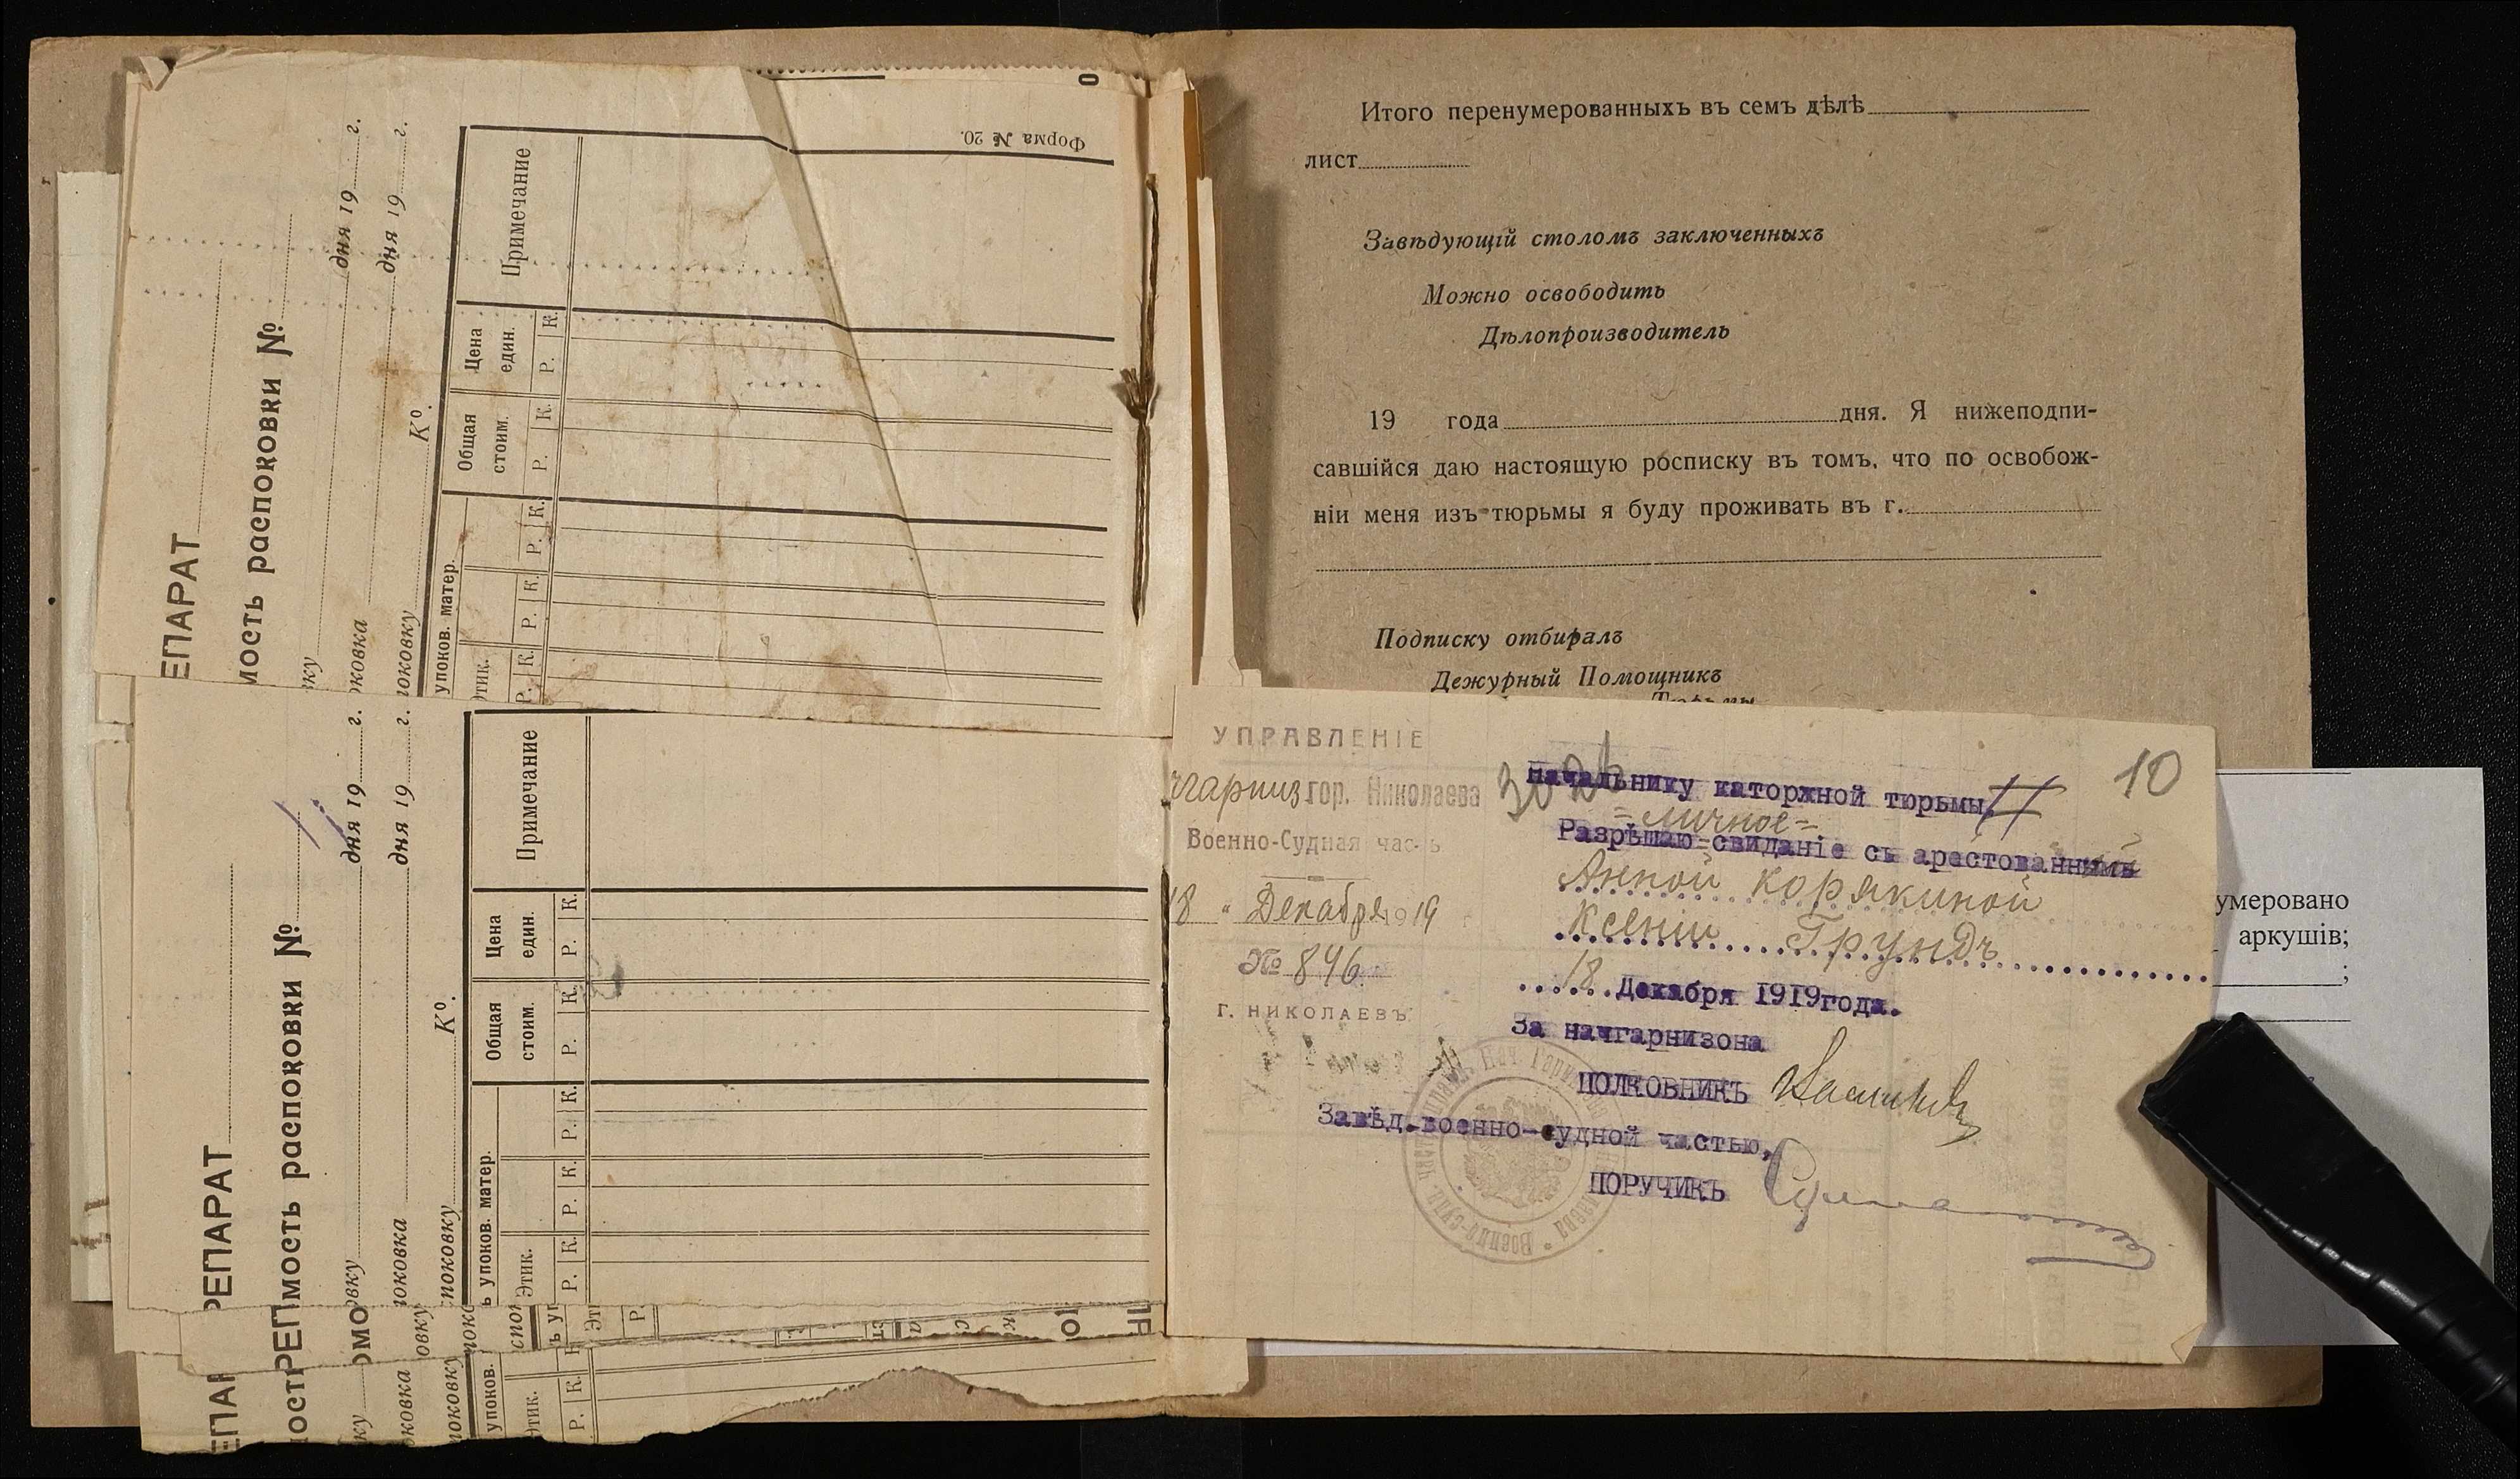 ЕПАРАТ
мость распоковки №
вку дня 19 г.
оковка дня 19 г.
поковку К⁰.
упоков. матер.
Общая стоим.
Цена един.
Примечание
Этик.
Р. К. Р. К. Р. К. Р. К. Р. К.
Форма № 20.
0
РЕПАРАТ
мость распоковки №
овку дня 19 г.
поковка дня 19 г.
споковку К⁰.
ь упоков. матер.
Общая стоим.
Цена един.
Примечание
Этик.
Р. К. Р. К. Р. К. Р. К. Р. К.
ЕПАР
РЕП
ост
ОМО
вку
оковка
поковку
упоков.
Этик.
Р. К.
Итого перенумерованныхъ въ семъ дѣлѣ
лист
Завѣдующій столомъ заключенныхъ
Можно освободить
Дѣлопроизводитель
19 года дня. Я нижеподпи-
савшійся даю настоящую росписку въ томъ, что по освобож-
ніи меня изъ тюрьмы я буду проживать въ г.
Подписку отбиралъ
Дежурный Помощникъ
Тюрьмы
УПРАВЛЕНІЕ
чгарниз гор. Николаева
Военно-Судная часть
18 " Декабря 1919 г
№ 846.
Г. НИКОЛАЕВЪ.
10
Начальнику каторжной тюрьмы
=личное=
Разрѣшаю-свиданіе съ арестованными
Анной Корякиной
Ксеніи Грундъ
18 Декабря 1919года.
За начгарнизона
ПОЛКОВНИКЪ
Завѣд.военно-судной частью,
ПОРУЧИКЪ
умеровано
аркушів;
;